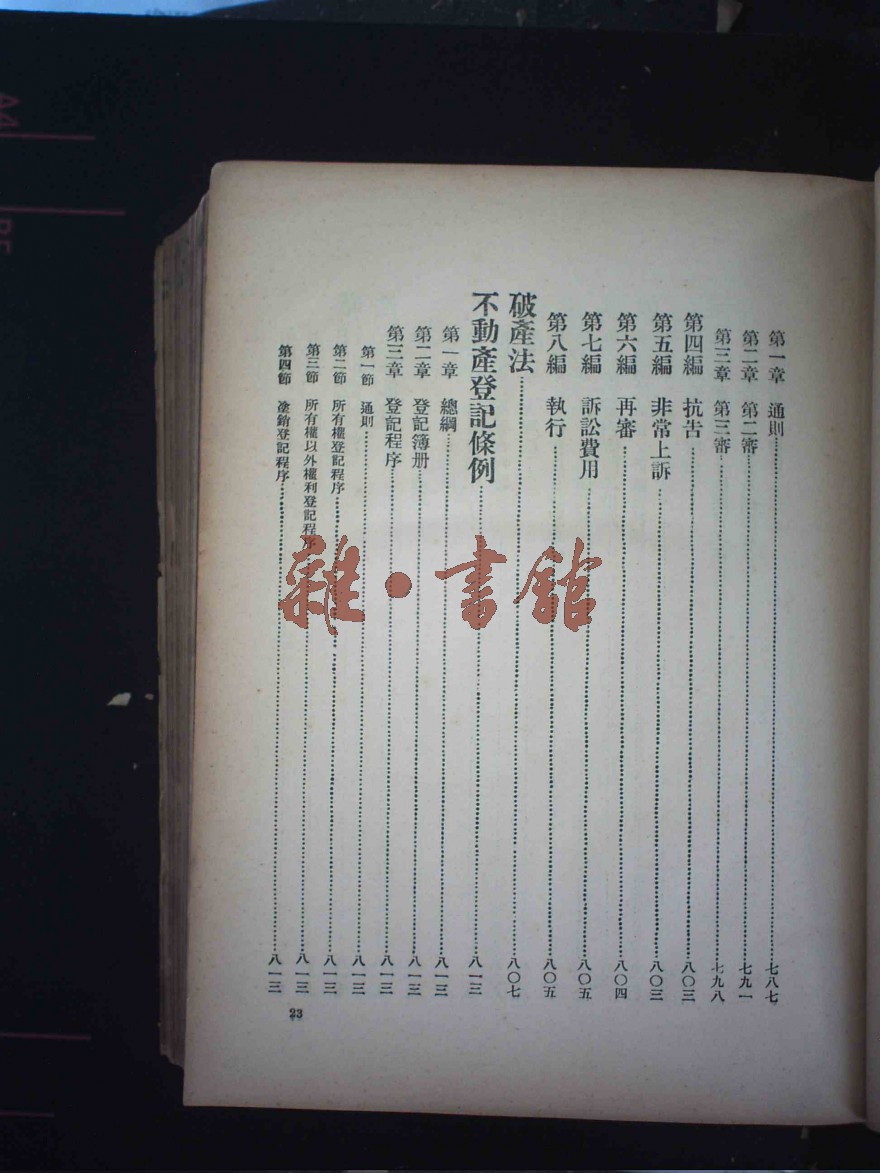 第一章　通則……七八七
第二章　第二審……七九一
第三章　第三審……七九八
第四編　抗告……八〇三
第五編　非常上訴……八〇三
第六編　再審……八〇四
第七編　訴訟費用……八〇五
第八編　執行……八〇五
破產法……八〇七
不動產登記條例……八一三
第一章　總綱……八一三
第二章　登記簿册……八一三
第三章　登記程序……八一三
第一節　通則……八一三
第二節　所有權登記程序……八一三
第三節　所有權以外權利登記程序……八一三
第四節　塗銷登記程序……八一三
23
雜·書館
A4